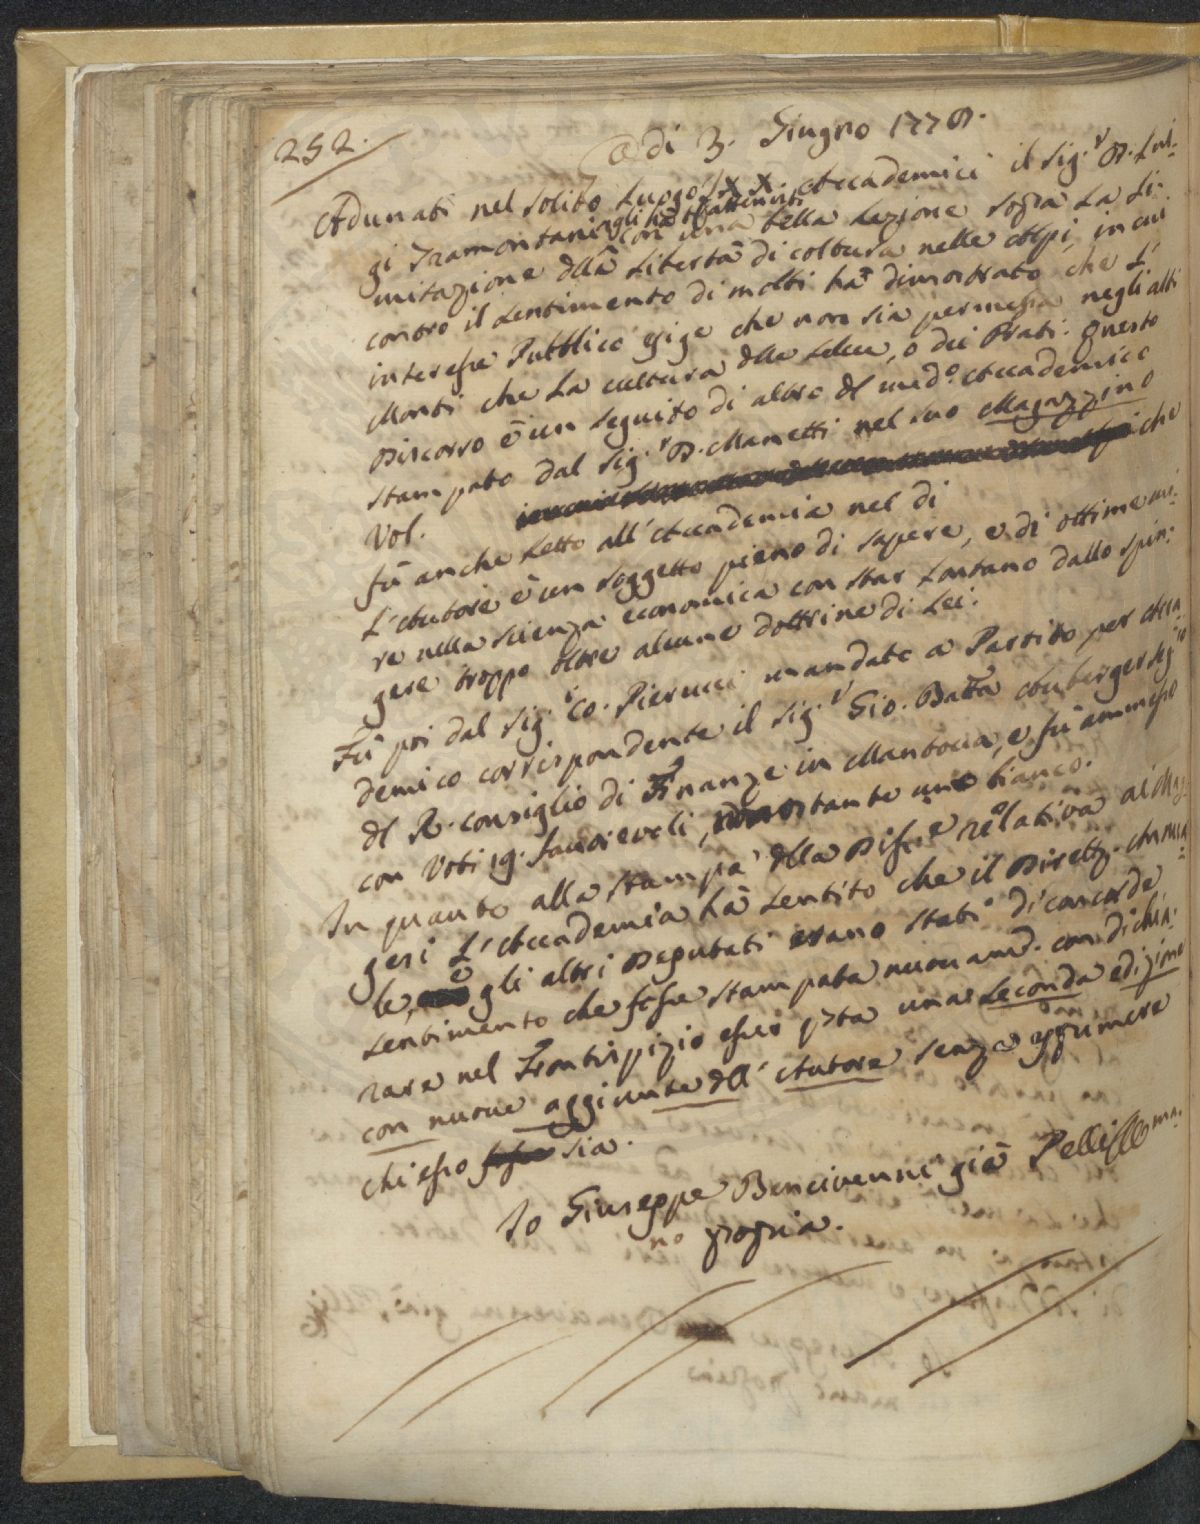 252.
Adi 3. Giugno 1778.
Adunati nel solito Luogo XX. Accademici il Sig.r D. Lui:
gi Tramontani gli ha trattenuti con una bella Lezione sopra la Li:
mitazione della Libertà di coltura nelle Alpi, in cui
contro il sentimento di molti ha dimostrato che L'
interesse Pubblico esige che non sia permessa negli alti
Monti che La cultura della Selva, o dei Prati. Questo
Discorso è un seguito di altro del med.o Accademico
stampato dal Sig.r D. Manetti nel suo Magazzino
Vol. che
fù anche Letto all'Accademia nel di
L'Autore è un soggetto pieno di sapere, e di ottime mi:
re nella scienza economica con star Lontano dallo spin:
gere troppo oltre alcune dottrine di Lei.
Fù poi dal Sig.r Co. Pierucci mandato a Partito per Acca
demico corrispondente il Sig.r Gio. Batta Auberger Seg.rio
del R. Consiglio di Finanze in Mantova, e fù ammesso
con Voti 19. favorevoli, nonostante uno bianco.
In quanto alla stampa della Diss.e relativa ai
geri L'Accademia hà sentito che il Dirett.
le, e gli altri Deputati erano stati di concorde
sentimento che fosse stampata nuovam.e con dichia:
rare nel Frontispizio esser q.sta una seconda edizione
con nuove aggiunte dell'Autore senza esprimere
chi esso sia.
Io Giuseppe Bencivenni già Pelli ma:
no propria.